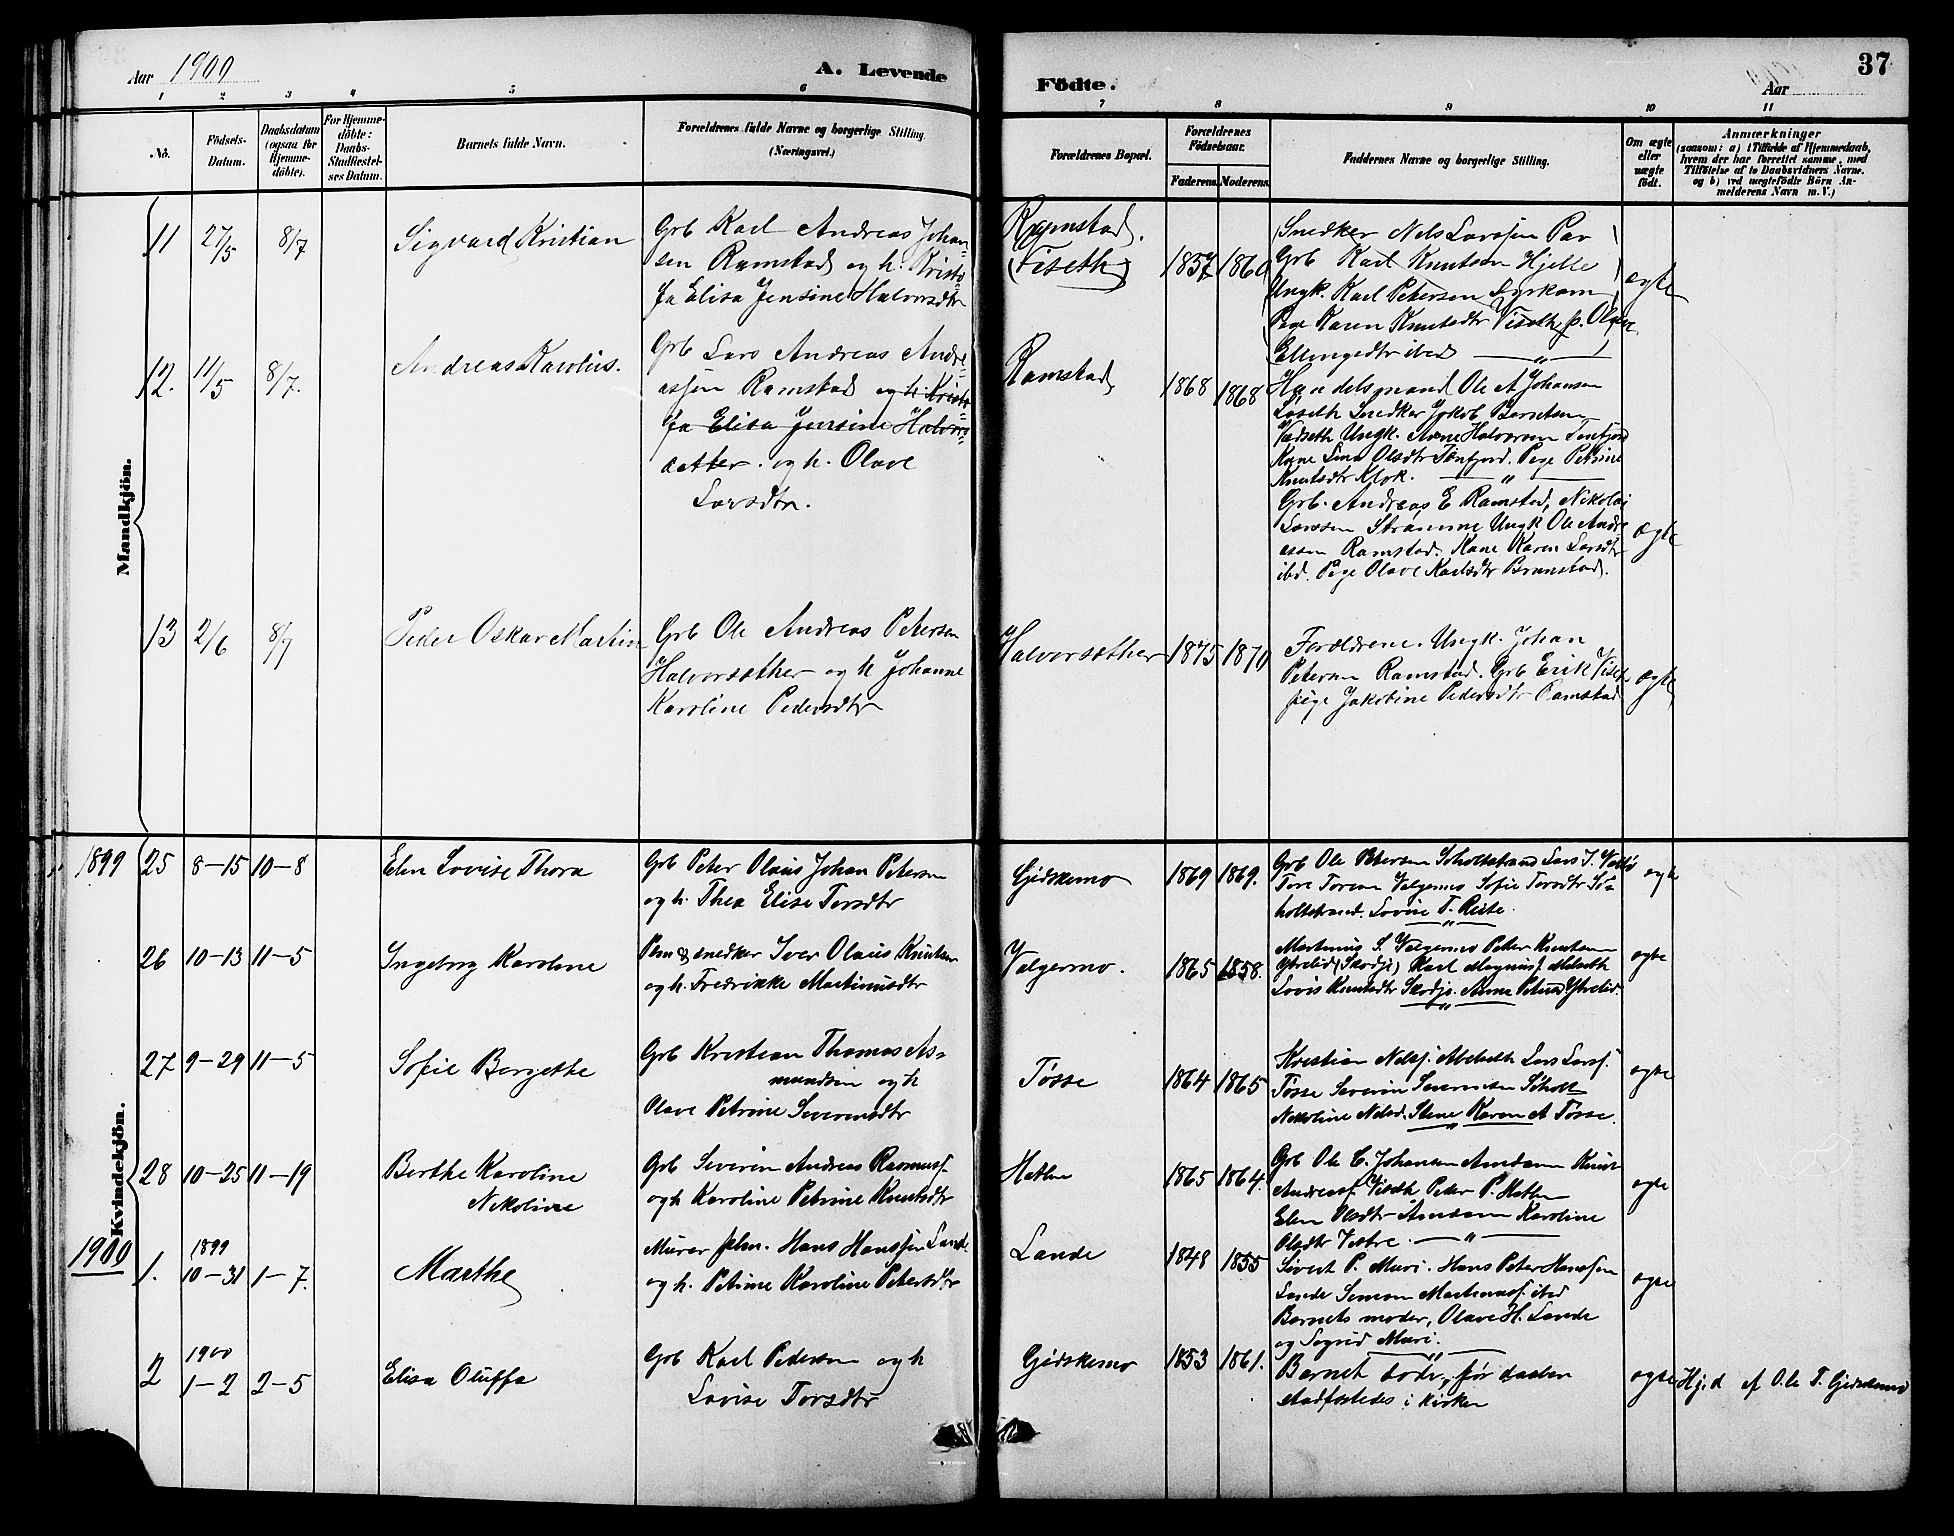 Aar 1900
A. Levende
Födte.
Aar
37
1
2
3
4
5
6
7
8
9
10
11
No.
Födsels-
Datum.
Daabsdatum
(ogsaa for
Hjemme-
döbte).
For Hjemme-
döbte:
Daabs-
Stadfæstel-
ses Datum.
Barnets fulde Navn.
Forældrenes fulde Navne og borgerlige Stilling.
(Næringsvei.)
Forældrenes Bopæl.
Forældrenes
Födselsaar.
Faderens.
Moderens.
Faddernes Navne og borgerlige Stilling.
Om ægte
eller
uægte
födt.
Anmærkninger
(saasom: a) i Tilfælde af Hjemmedaab,
hvem der har forrettet samme, med
Tilföielse af to Daabsvidners Navne.
og b) ved uægtefödte Börn An-
melderens Navn m. V.)
Mandkjön.
11
27/5
8/7
Sigvard Kristian
Grb Karl Andreas Johan-
sen Ramstad og h. Kristi-
fa Elisa Jensine Halvorsdtr
Ramstad.
(Fiseth)
1857
1860
Snedker Nels Larssen Par
Grb Karl Knutsen Hjelle
Ungk. Karl Petersen Dyrkorn
Pige Karen Knutsdtr Viseth, p. Oline
Ellingsdtr ibid — „ —
ægte
12.
11/5
8/7.
Andreas Karolius.
Grb Lars Andreas Andre-
assen Ramstad og h. Kristi-
fa Elisa Jensine Halvors-
datter. og h. Olave
Larsdtr.
Ramstad
1868
1868
Handelsmand Ole A Johansen
Snedker Jakob Berntsen
Ungk. Arne Halvorsen Tenfjord
Kone Lina Olsdtr Tenfjord. Pige Petrine
Knutsdtr Klok. — „ —
Grb. Andreas E Ramstad, Nikolai
Larssen Stramme Ungk Ole Andre
assen Ramstad. Kone Karen Larsdtr
ibd. Pige Olave Karlsdtr Brunstad.
ægte
13
2/6
8/7
Peder Oskar Martin
Grb Ole Andreas Petersen
Halvorsæther og h Johanne
Karoline Pedersdtr
Halvorsæther
1875
1870
Forældrene. Ungk. Johan
Petersen Ramstad. Grb Erik Viset
pige Jakobine Pedersdtr Ramstad
ægte
Kvindekjön.
1899
25
8-15
10-8
Elen Lovise Thora
Grb Peter Olaus Johan Petersen
og h. Thea Elise Torsdtr
Gjidskemo
1869
1869.
Grb Ole Petersen Soholtstrand Lars J.
Tore Toresen Valgermo Sofie Torsdtr So-
holtstrand. Lovise T. Reite.
ægte
26
10-13
11-5
Ingeborg Karoline
Plm & snedker Iver Olaus Knutsen
og h. Fredrikke Martinusdtr
Valgermo.
1865
1858.
Martinus S. Valgermo Peter Knutsen
Ytrelid (Skodje) Karl Magnus Melseth
Lovis Knutsdtr Skodje. Anna Petersd Ytrelid.
ægte
27
9-29
11-5
Sofie Bergethe
Grb Kristian Thomas As-
mundsen og h
Olave Petrine Severinsdtr
Tøsse
1864
1865
Kristian Nelss. Melseth Lars Larss.
Tøsse Severin Severinsen Søholt
Nikoline Nelsd. Stene Karen A Tøsse.
ægte
28
10-25
11-19
Berthe Karoline
Nikoline
Grb Severin Andreas Rasmuss.
og h Karoline Petrine Knutsdtr
Hatlen
1865
1864.
Grb Ole C. Johansen Amdam Knut
Andreass. Viseth Peter P. Hatlen
Elen Olsdtr Amdam Karoline
Olsdtr Vestre. — „ —
ægte
1900
1.
1899
10-31
1-7.
Marthe
Murer plm. Hans Hanssen Lande
og h. Petrine Karoline Petersdtr
Lande
1848
1855
Sivert P. Muri. Hans Peter Hanssen
Lande Simon Martinuss. ibid
Barnets moder, Olave H. Lande
og Sigrid Muri.
ægte
2
1900
1-2
2-5
Elisa Oluffa
Grb Karl Pedersen og h
Lovise Torsdtr
Gjidskemo
1853
1861.
Barnet døde, før daaben
stadfestedes i kirken
ægte
Hj.d af Ole T. Gjidskemo